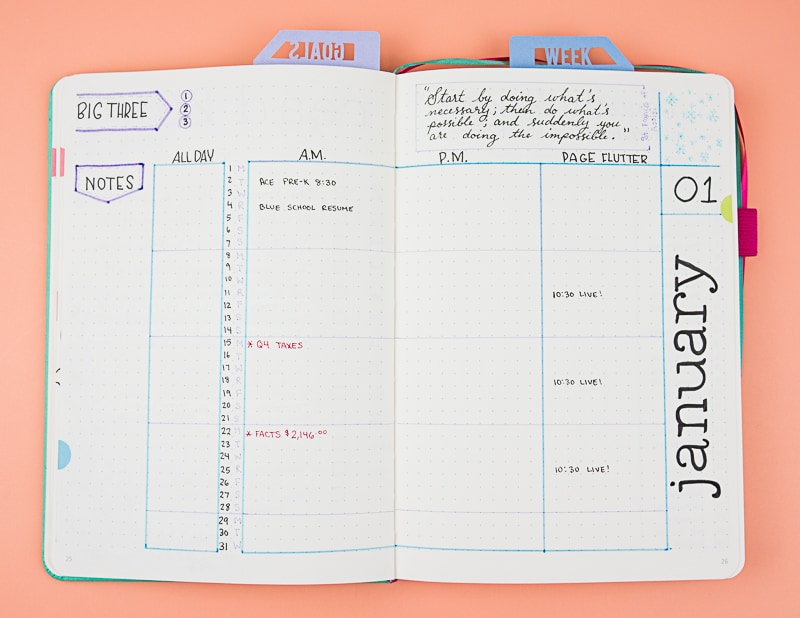 GOALS
WEEK
BIG THREE
1
2
3
"Start by doing what's
necessary; then do what's
possible; and suddenly you
are doing the impossible."
St. Francis of Assisi
NOTES
ALL DAY
A.M.
P.M.
PAGE FLUTTER
01
january
1 M
2 T ACE PRE-K 8:30
3 W
4 R BLUE SCHOOL RESUME
5 F
6 S
7 S
8 M
9 T
10 W
11 R 10:30 LIVE!
12 F
13 S
14 S
15 M * Q4 TAXES
16 T
17 W
18 R 10:30 LIVE!
19 F
20 S
21 S
22 M * FACTS $2,146.00
23 T
24 W
25 R 10:30 LIVE!
26 F
27 S
28 S
29 M
30 T
31 W
25
26